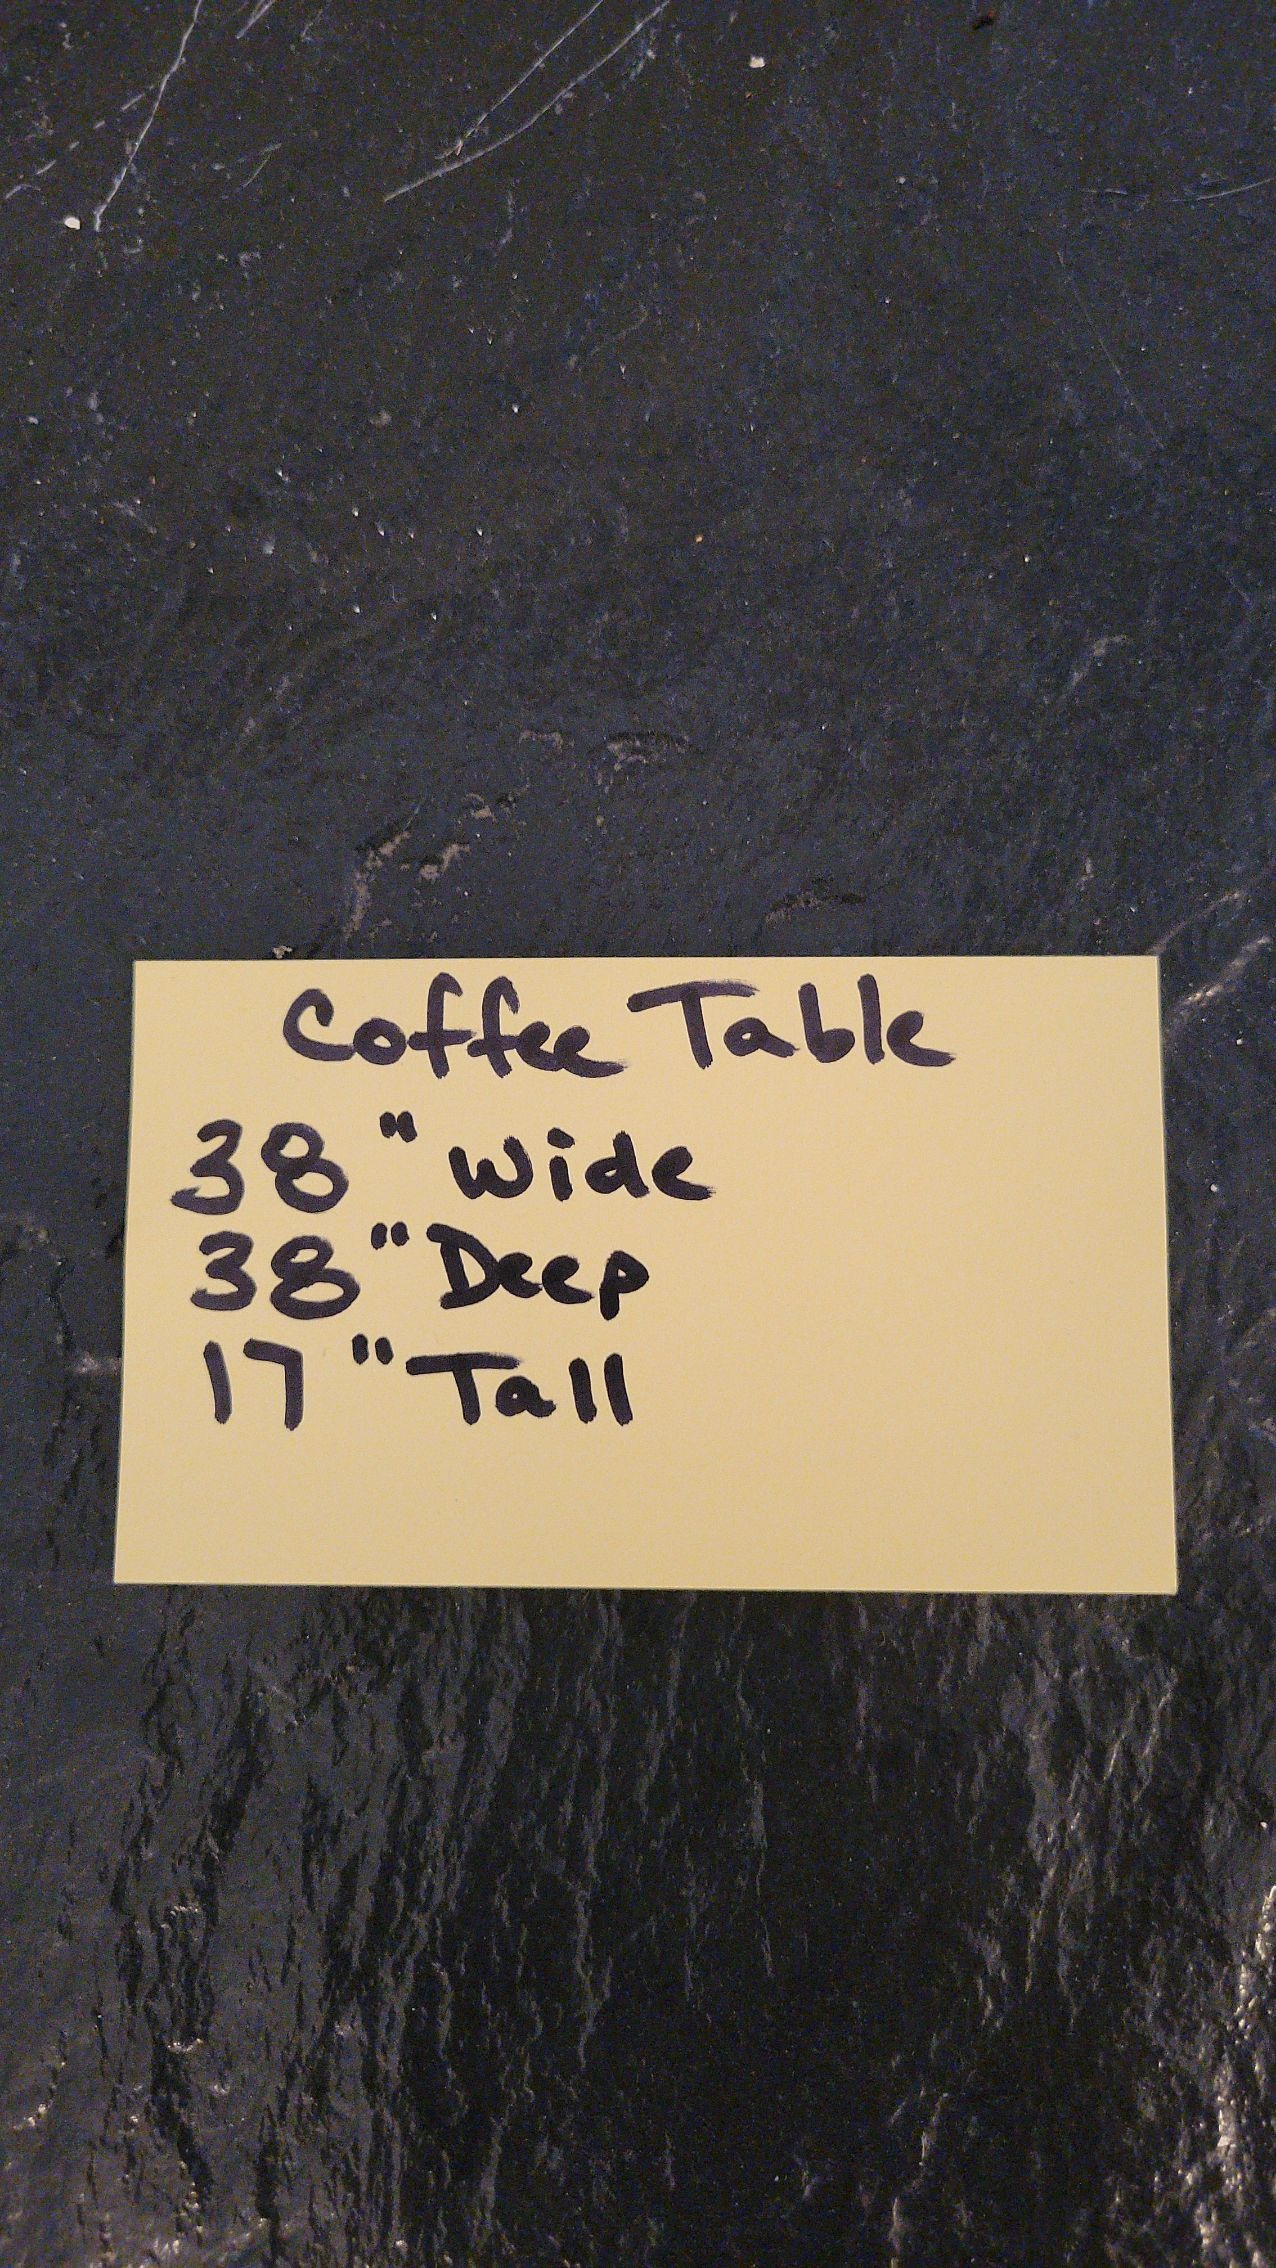 Coffee Table
38" Wide
38" Deep
17" Tall